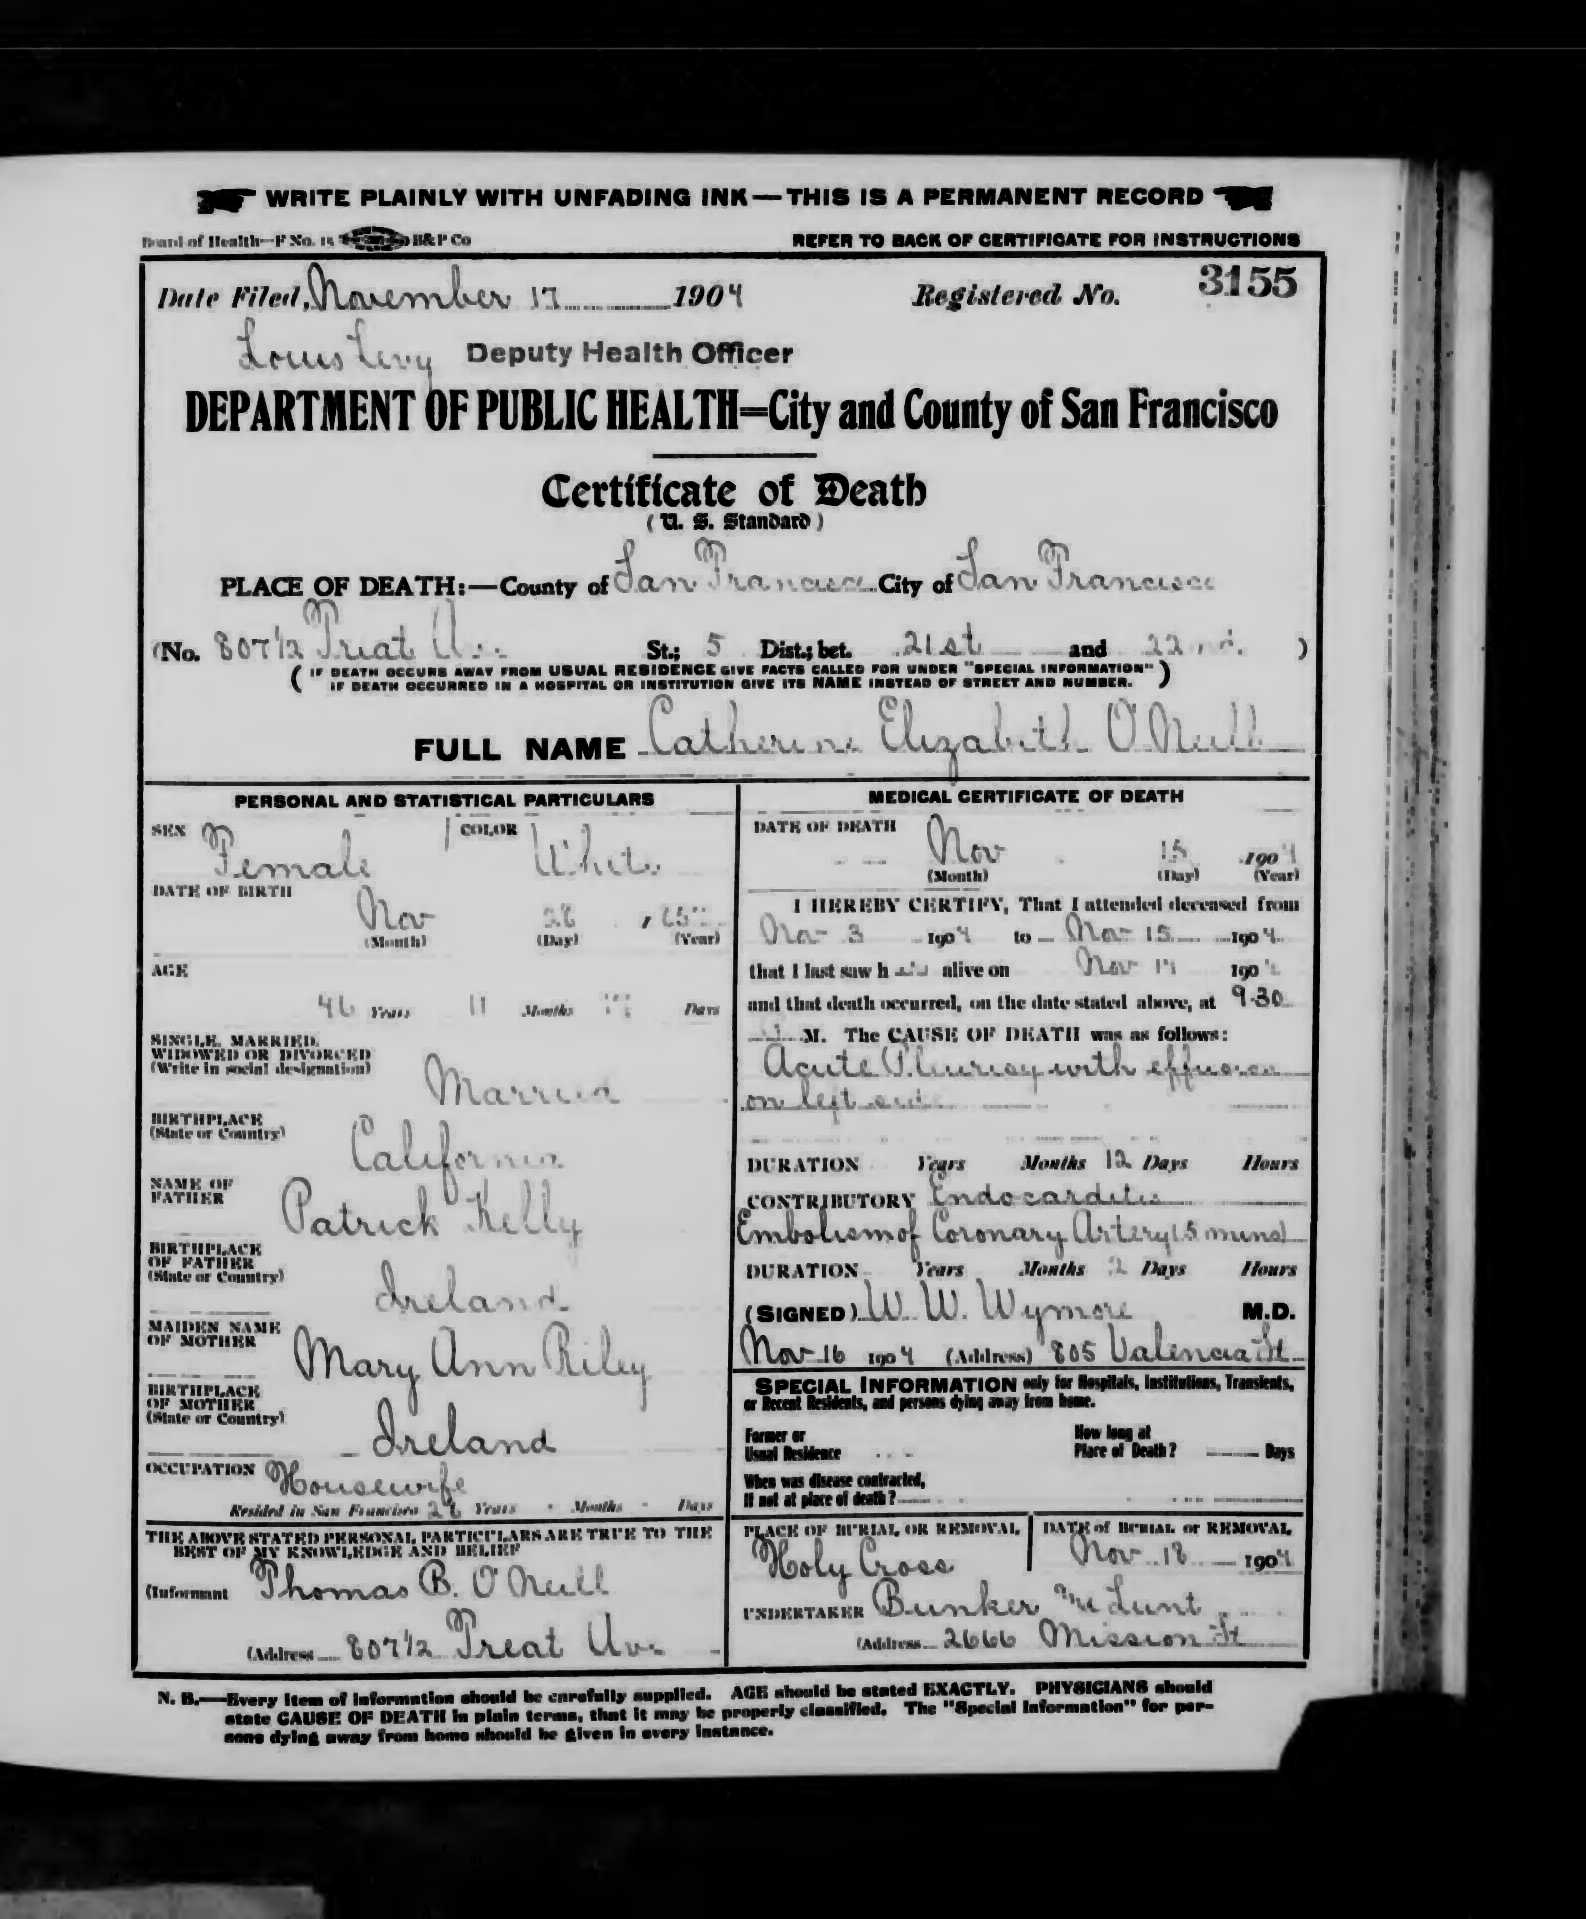 WRITE PLAINLY WITH UNFADING INK—THIS IS A PERMANENT RECORD
Board of Health—F No. 15 B&P Co
REFER TO BACK OF CERTIFICATE FOR INSTRUCTIONS
Date Filed, November 17 1904
Registered No. 3155
Louis Levy Deputy Health Officer
DEPARTMENT OF PUBLIC HEALTH=City and County of San Francisco
Certificate of Death
(U. S. Standard)
PLACE OF DEATH:—County of San Francisco City of San Francisco
(No. 807 1/2 Treat Av. St.; 5 Dist.; bet. 21st and 22nd.)
(IF DEATH OCCURS AWAY FROM USUAL RESIDENCE GIVE FACTS CALLED FOR UNDER "SPECIAL INFORMATION"
IF DEATH OCCURRED IN A HOSPITAL OR INSTITUTION GIVE ITS NAME INSTEAD OF STREET AND NUMBER.)
FULL NAME Catherine Elizabeth O'Neill
PERSONAL AND STATISTICAL PARTICULARS
SEX Female COLOR White
DATE OF BIRTH
Nov 28
(Month) (Day) (Year)
AGE
46 Years 11 Months Days
SINGLE, MARRIED,
WIDOWED OR DIVORCED
(Write in social designation)
Married
BIRTHPLACE
(State or Country)
California
NAME OF
FATHER
Patrick Kelly
BIRTHPLACE
OF FATHER
(State or Country)
Ireland
MAIDEN NAME
OF MOTHER
Mary Ann Riley
BIRTHPLACE
OF MOTHER
(State or Country)
Ireland
OCCUPATION Housewife
Resided in San Francisco 28 Years - Months - Days
THE ABOVE STATED PERSONAL PARTICULARS ARE TRUE TO THE
BEST OF MY KNOWLEDGE AND BELIEF
(Informant Thomas B. O'Neill
(Address 807 1/2 Treat Av.
MEDICAL CERTIFICATE OF DEATH
DATE OF DEATH
Nov 15 1904
(Month) (Day) (Year)
I HEREBY CERTIFY, That I attended deceased from
Nov 3 1904 to Nov 15 1904
that I last saw h alive on Nov 190
and that death occurred, on the date stated above, at 9.30
M. The CAUSE OF DEATH was as follows:
Acute Pleurisy with effusion
on left side
DURATION Years Months 12 Days Hours
CONTRIBUTORY Endocarditis
Embolism of Coronary Artery (5 mins)
DURATION Years Months 2 Days Hours
(SIGNED) W. W. Wymore M.D.
Nov 16 1904 (Address) 805 Valencia St
SPECIAL INFORMATION only for Hospitals, Institutions, Transients,
or Recent Residents, and persons dying away from home.
Former or
Usual Residence
How long at
Place of Death? Days
When was disease contracted,
If not at place of death?
PLACE OF BURIAL OR REMOVAL
Holy Cross
DATE of BURIAL or REMOVAL
Nov 18 1904
UNDERTAKER Bunker & Lunt
(Address 2666 Mission St
N. B.—Every item of information should be carefully supplied. AGE should be stated EXACTLY. PHYSICIANS should
state CAUSE OF DEATH in plain terms, that it may be properly classified. The "Special Information" for per-
sons dying away from home should be given in every instance.